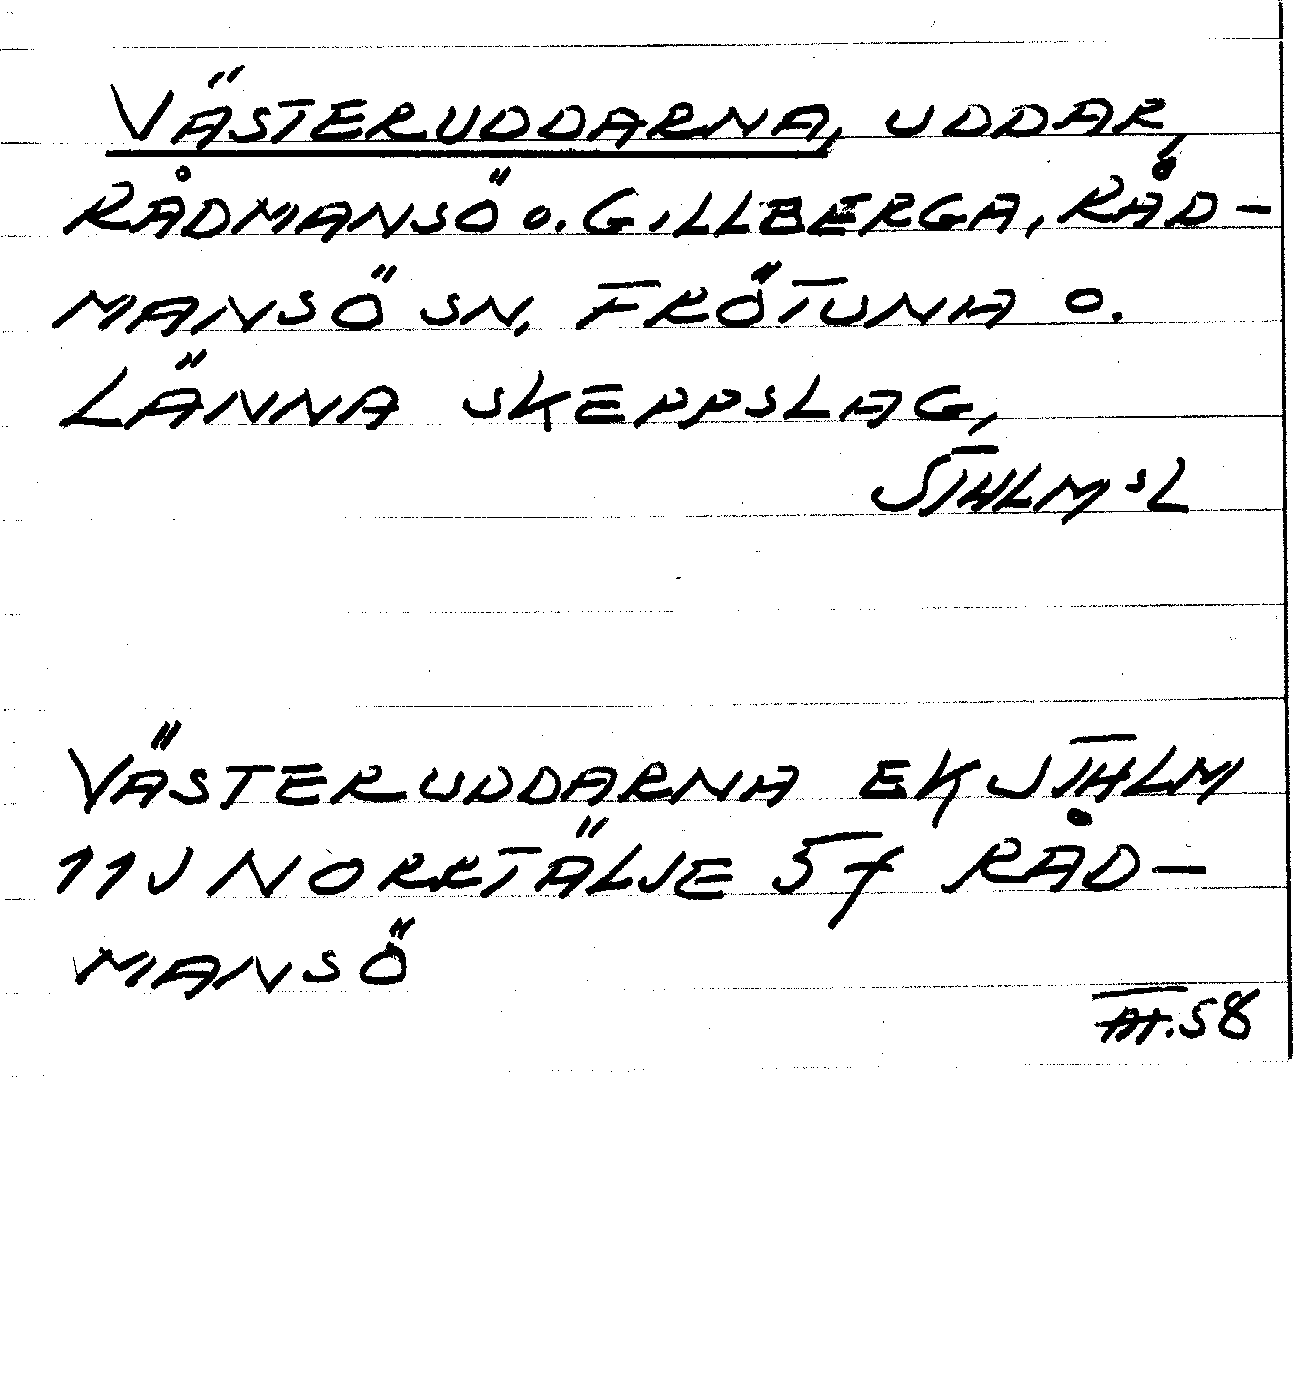 VÄSTERUDDARNA, UDDAR,
RÅDMANSÖ O. GILLBERGA, RÅD-
MANSÖ SN, FRÖTUNA O.
LÄNNA SKEPPSLAG,
STHLMSL
VÄSTERUDDARNA EK STHLM
11J NORRTÄLJE 54 RÅD-
MANSÖ
58